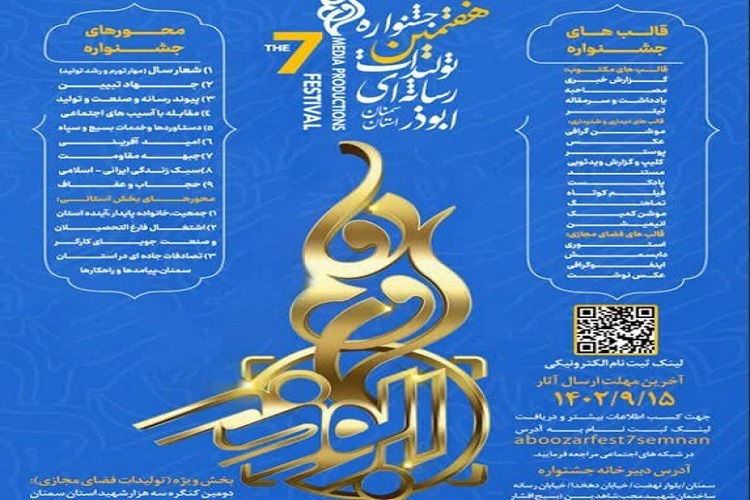 هفتمین جشنواره
تولیدات
رسانه ای
ابوذر
استان سمنان
THE 7
MEDIA PRODUCTIONS
FESTIVAL
قالب های
جشنواره
قالب های مکتوب:
گزارش خبری
مصاحبه
یادداشت و سرمقاله
تیتر
قالب های دیداری و شنیداری:
موشن گرافی
عکس
پوستر
کلیپ و گزارش ویدئویی
مستند
پادکست
فیلم کوتاه
نماهنگ
موشن کمیک
انیمیشن
قالب های فضای مجازی:
استوری
دابسمش
اینفوگرافی
عکس نوشت
محورهای
جشنواره
۱) شعار سال (مهار تورم و رشد تولید)
۲) جهاد تبیین
۳) پیوند رسانه و صنعت و تولید
۴) مقابله با آسیب های اجتماعی
۵) دستاوردها و خدمات بسیج و سپاه
۶) امید آفرینی
۷) جبهه مقاومت
۸) سبک زندگی ایرانی - اسلامی
۹) حجاب و عفاف
محورهای بخش استانی:
۱) جمعیت، خانواده پایدار، آینده استان
۲) اشتغال فارغ التحصیلان
و صنعت جویای کارگر
۳) تصادفات جاده ای در استان
سمنان، پیامدها و راهکارها
ابوذر
لینک ثبت نام الکترونیکی
آخرین مهلت ارسال آثار
۱۴۰۲/۹/۱۵
جهت کسب اطلاعات بیشتر و دریافت
لینک ثبت نام به آدرس
aboozarfest7semnan
در شبکه های اجتماعی مراجعه فرمایید.
آدرس دبیرخانه جشنواره
سمنان/بلوار نهضت/خیابان دهخدا/خیابان رسانه
بخش ویژه (تولیدات فضای مجازی):
دومین کنگره سه هزار شهید استان سمنان